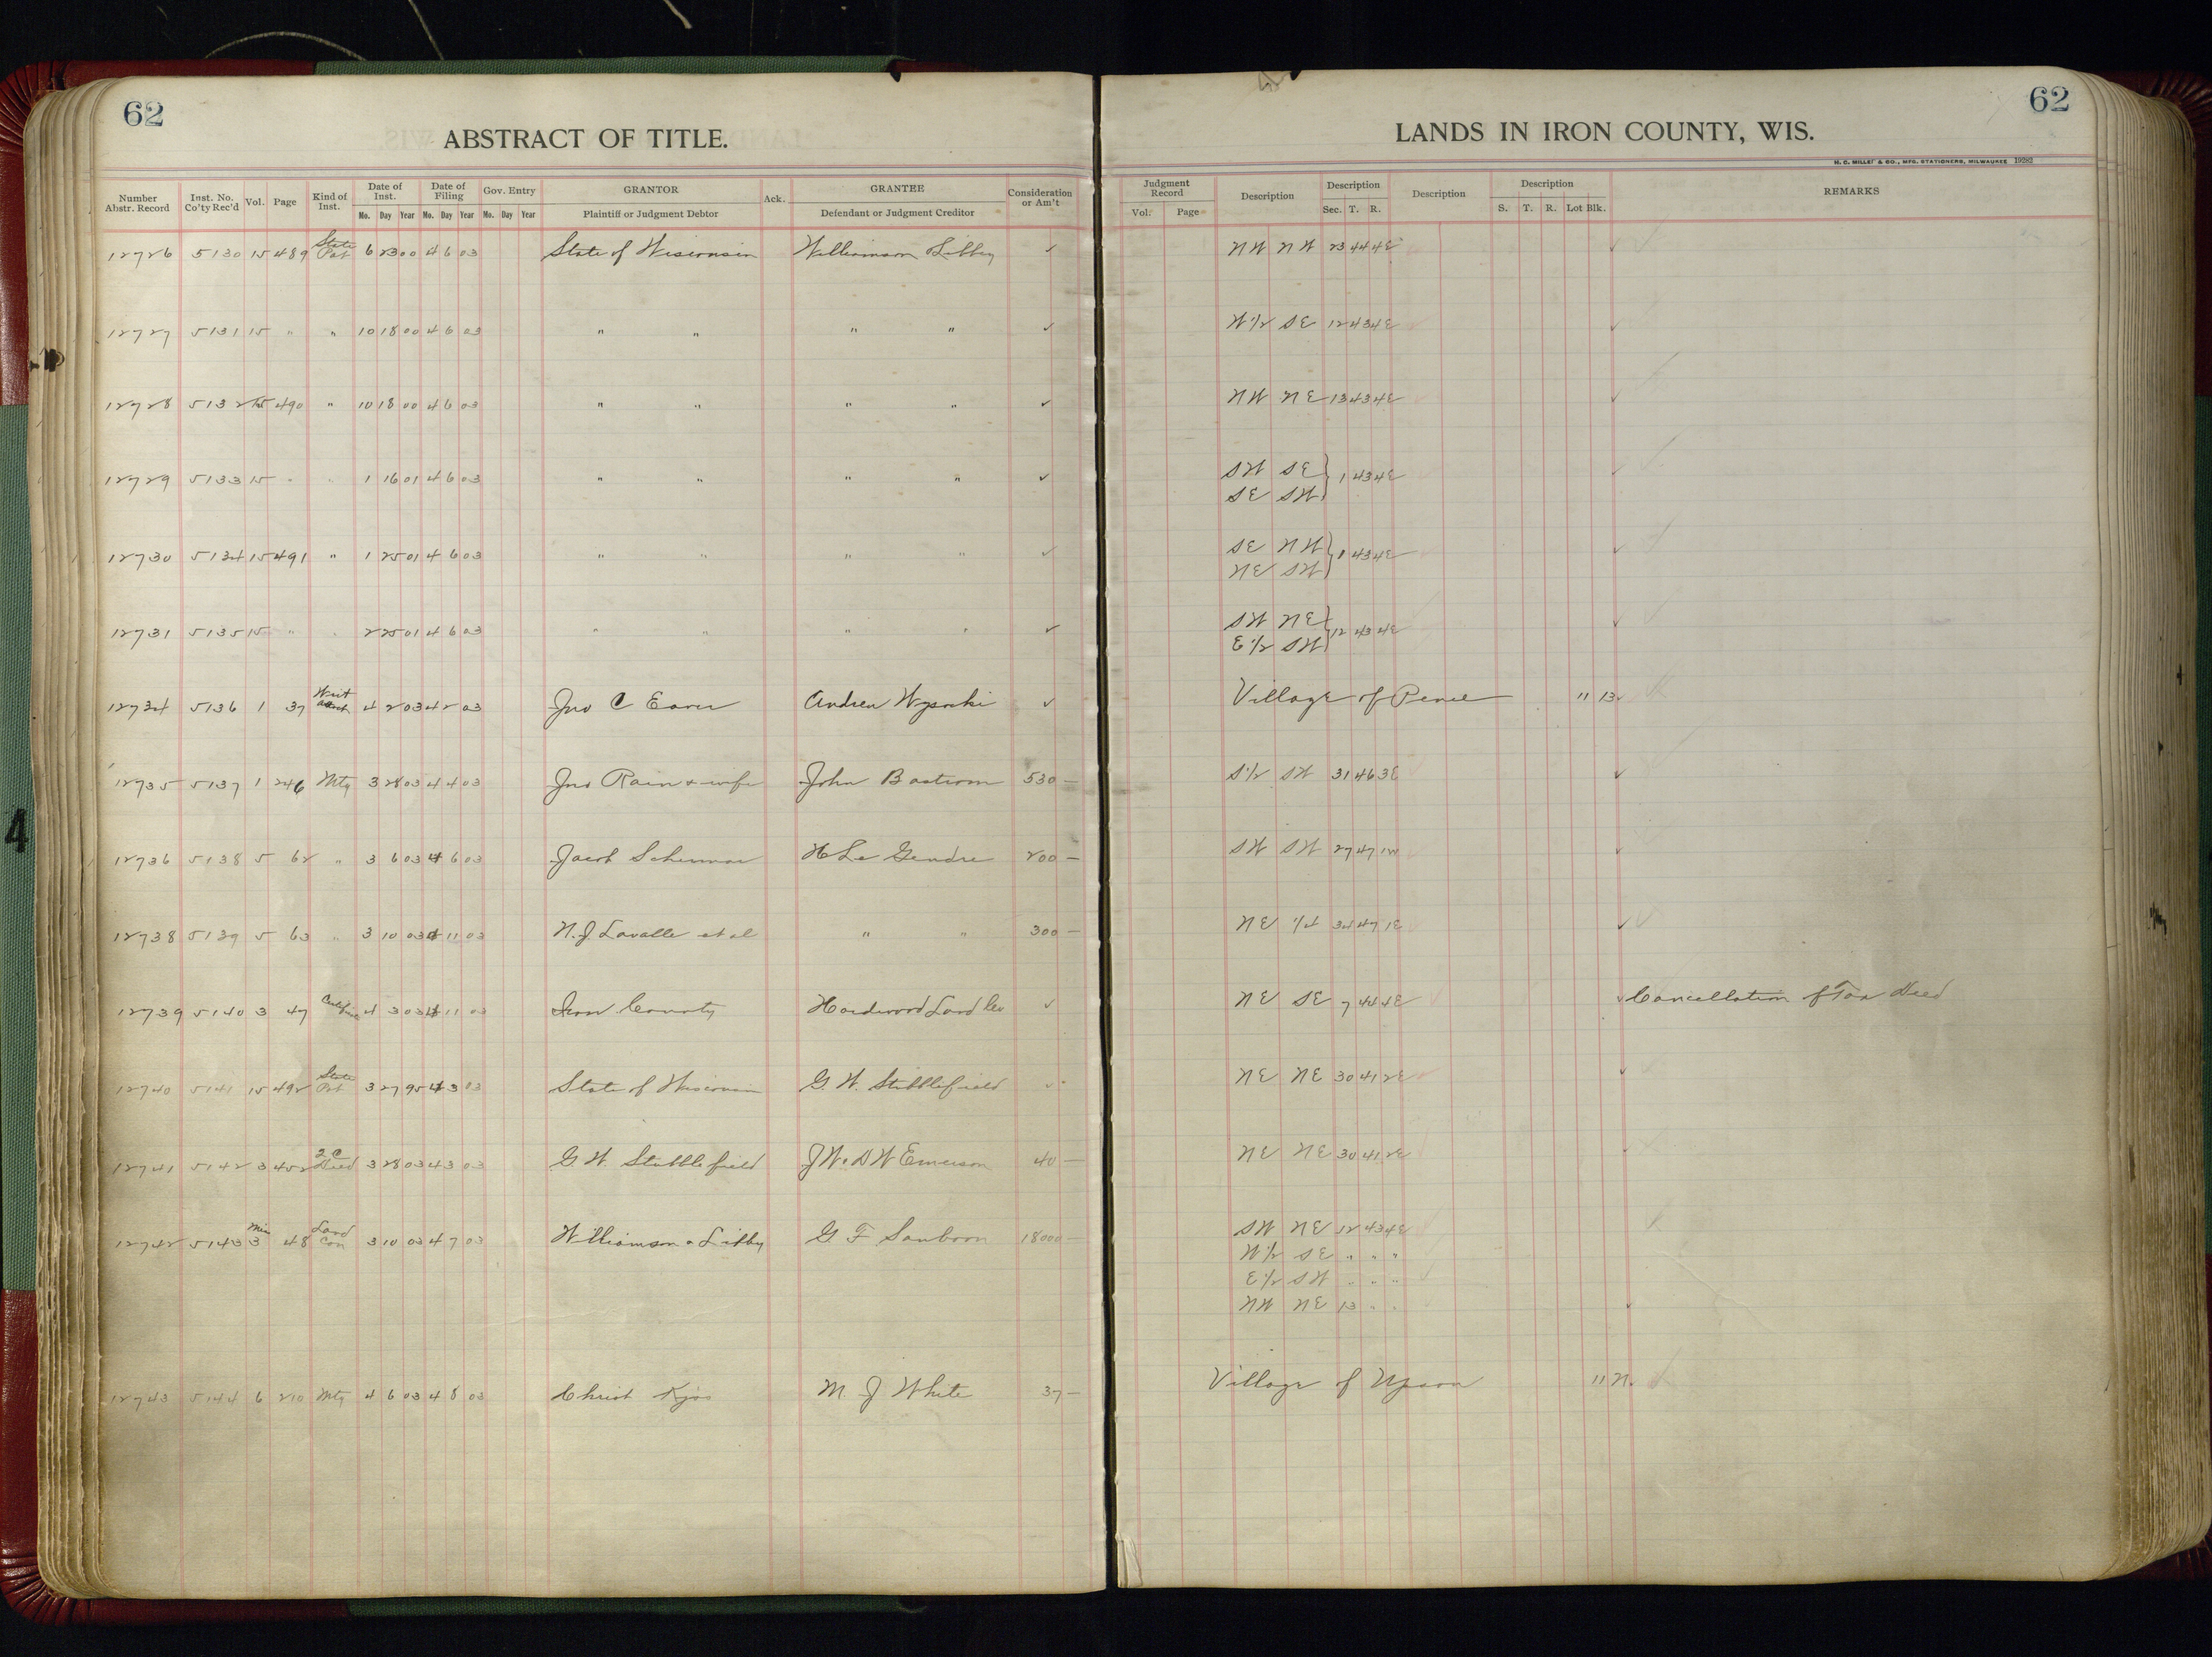 62
ABSTRACT OF TITLE.
62
LANDS IN IRON COUNTY, WIS.
H. C. MILLER & CO., MFG. STATIONERS, MILWAUKEE 19282
Number Abstr. Record Inst. No. Co'ty Rec'd Vol. Page Kind of Inst. Date of Inst. Mo. Day Year Date of Filing Mo. Day Year Gov. Entry Mo. Day Year GRANTOR Plaintiff or Judgment Debtor Ack. GRANTEE Defendant or Judgment Creditor Consideration or Am't Judgment Record Vol. Page Description Description Sec. T. R. Description Description S. T. R. Lot Blk. REMARKS
12726 5130 15 489 State Pat 6 23 00 4 6 03 State of Wisconsin Williamson & Libbey ✓ NW NW 23 44 4E ✓
12727 5131 15 " " 10 18 00 4 6 03 " " " " ✓ W 1/2 SE 12 43 4E ✓
12728 5132 15 490 " 10 18 00 4 6 03 " " " " ✓ NW NE 13 43 4E ✓
12729 5133 15 " " 1 16 01 4 6 03 " " " " ✓ SW SE } 1 43 4E ✓
SE SW
12730 5134 15 491 " 1 25 01 4 6 03 " " " " ✓ SE NW } 1 43 4E ✓
NE SW
12731 5135 15 " " 2 25 01 4 6 03 " " " " ✓ SW NE } 12 43 4E ✓
E 1/2 SW
12734 5136 1 37 4 2 03 4 2 03 Jno C Andrew Wysocki ✓ Village of Pence 11 13
12735 5137 1 246 Mtg 3 28 03 4 4 03 Jno Rain & wife John Bastrom 530 — S 1/2 SW 31 46 3E ✓
12736 5138 5 62 " 3 6 03 4 6 03 Jacob H Le Gendre 200 — SW SW 27 47 1W ✓
12738 5139 5 63 " 3 10 03 4 11 03 N. J. Lavalle et al " " 300 — NE 1/4 34 47 1E ✓
12739 5140 3 47 4 3 03 4 11 03 Iron County Hardwood Land Co ✓ NE SE 7 44 4E ✓ Cancellation of Tax Deed
12740 5141 15 492 State Pat 3 27 95 4 3 03 State of Wisconsin G. W. Stubblefield ✓ NE NE 30 41 2E ✓
12741 5142 3 452 2 C Deed 3 28 03 4 3 03 G W Stubblefield J W & D W Emerson 40 — NE NE 30 41 2E ✓
12742 5143 Mis 3 48 Land Con 3 10 03 4 7 03 Williamson & Libby G F Sanborn 18000 — SW NE 12 43 4E
W 1/2 SE " " "
E 1/2 SW " " "
NW NE 13 " " ✓
12743 5144 6 210 Mtg 4 6 03 4 8 03 Christ Kjos M. J White 37 — Village of Upson 11 N.